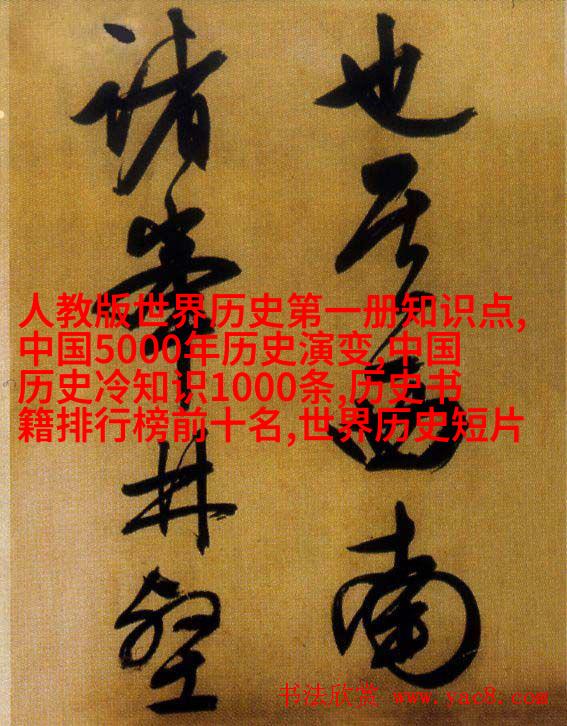 也其西南
諸峯林壑
人教版世界历史第一册知识点,
中国5000年历史演变,中国
历史冷知识1000条,历史书
籍排行榜前十名,世界历史短片
书法欣赏 www.yac8.com